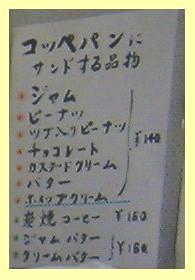 コッペパンに
サンドする品物
ジャム
ピーナツ
ツブ入りピーナツ
チョコレート
カスタードクリーム
バター
ホイップクリーム
¥140
炭焼コーヒー ¥150
ジャムバター
クリームバター ¥160